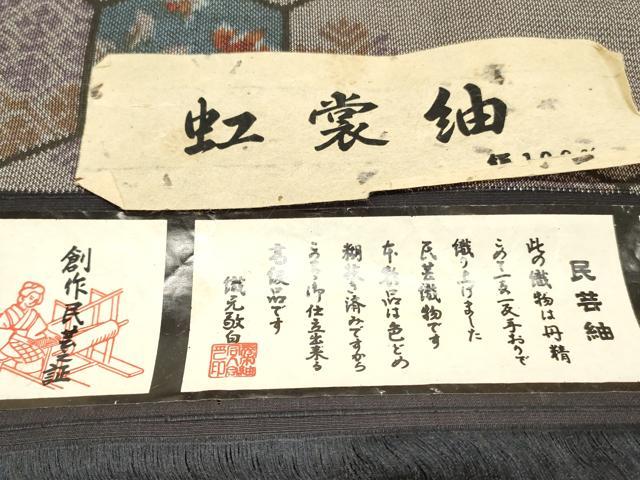 虹裳紬
民芸紬
此の織物は丹精
こめて一反一反手おりで
織り上げました
民芸織物です
本製品は色どめ
糊抜き済みですから
このまゝ御仕立出来る
高級品です
織元敬白
創作民芸之証